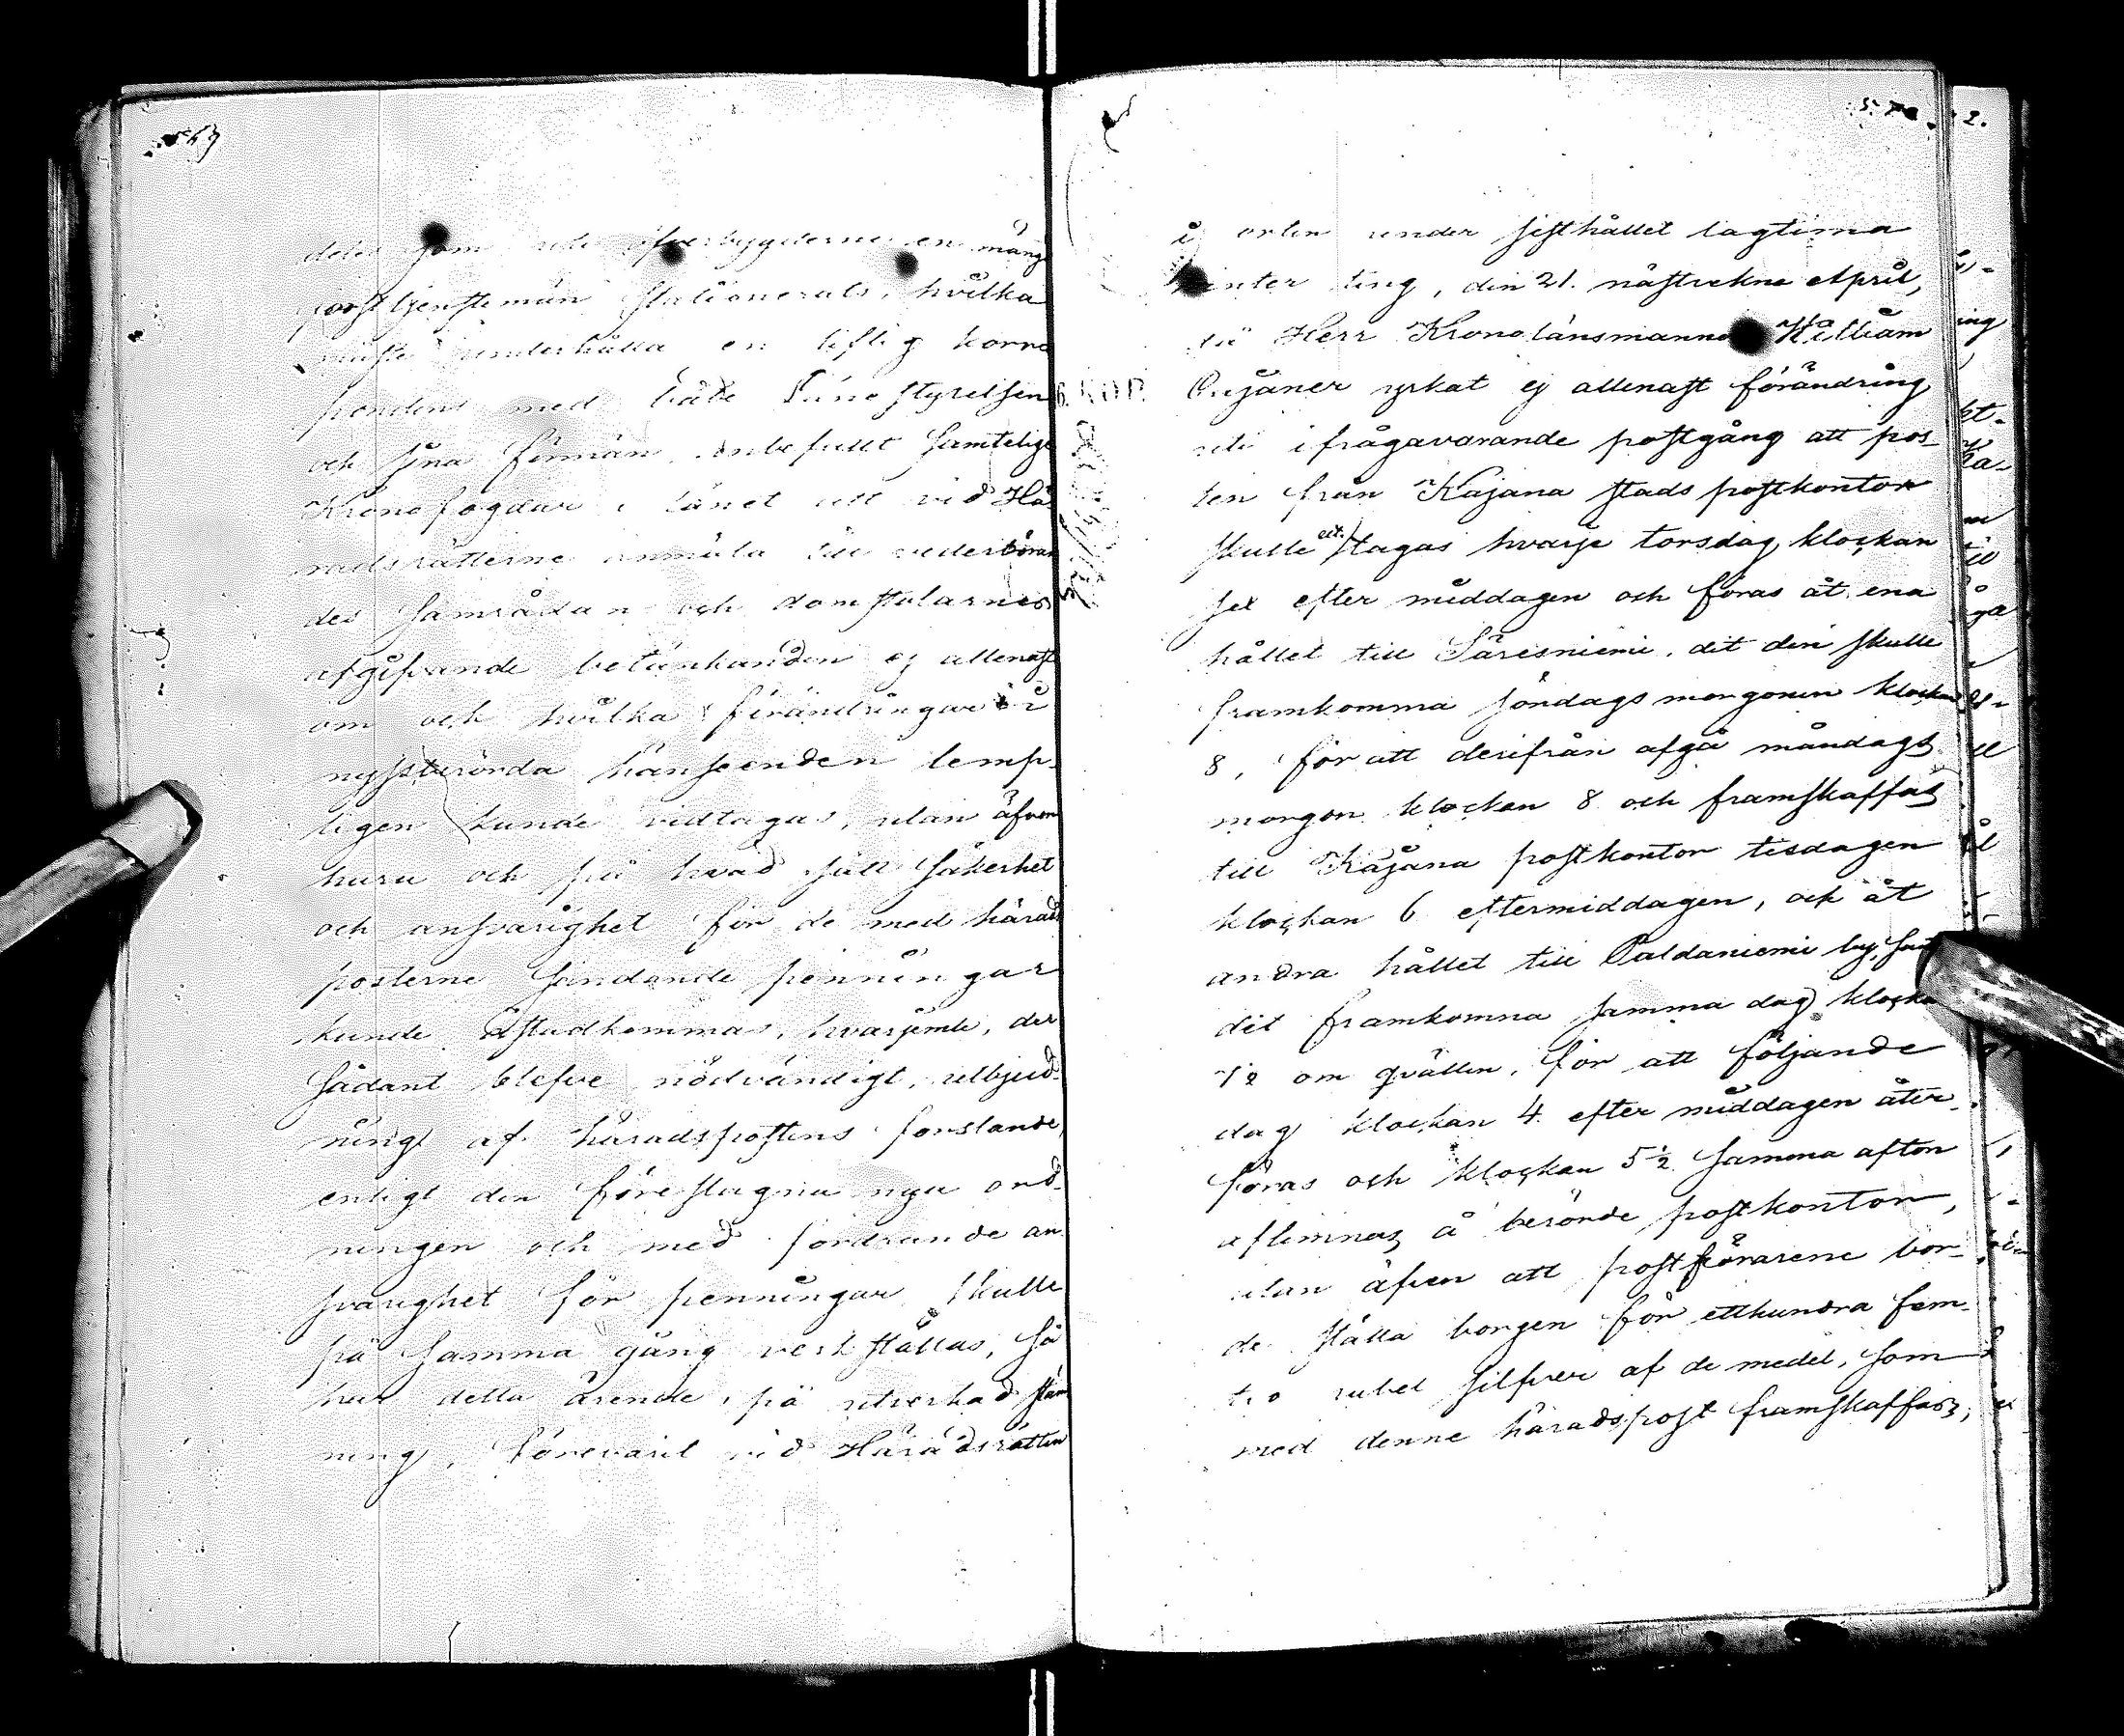 569
som uti öfverbygderne en mängd
posttjenstemän stationerats, hvilka
måste underhålla en liflig korre
spondens med både Länestyrelsen
och sina förmän, anbefallt samtelige
Kronofogdar i länet att vid Hä
radsrätterne anmäla till vederböran
des samrådan och domstolarnes
afgifvande betänkanden ej allenast
om och hvilka förändringar i
nyssberörda hänseenden lemp-
ligen kunde vidtagas, utan äfven
huru och på hvad sätt säkerhet
och ansvarighet för de med härads
posterne sändande penningar
kunde åstadkommas, hvarjemte, der
sådant blefve nödvändigt, utbjud-
ning af häradspostens forslande,
enligt den föreslagna nya ord-
ningen och med fordrande an
svarighet för penningar skulle
på samma gång verkställas, så
har detta ärende, på utverkad stäm
ning, förevarit vid Häradsrätten
570
i orten under sisthållet lagtima
vinter ting, den 21. nästvekne April,
då Herr Kronolänsmannen William
Cajaner yrkat ej allenast förändring
uti ifrågavarande postgång att pos-
ten från Kajana stads postkontor
skulle att aftagas hvarje torsdag klockan
sex efter middagen och föras åt ena
hållet till Säresniemi, dit den skulle
framkomma söndags morgonen klockan
8, för att derifrån afgå måndags
morgon klockan 8 och framskaffas
till Kajana postkontor tisdagen
klockan 6 eftermiddagen, och åt
andra hållet till Paldaniemi by,
dit framkomna samma dag klockan
1/2 om qvällen, för att följande
dag klockan 4 efter middagen åter-
föras och klockan 5 1/2 samma afton
aflemnas å berörde postkontor,
utan äfven att postförarene bor-
de ställa borgen för etthundra fem-
tio rubel silfver af de medel, som
med denne häradspost framskaffas;